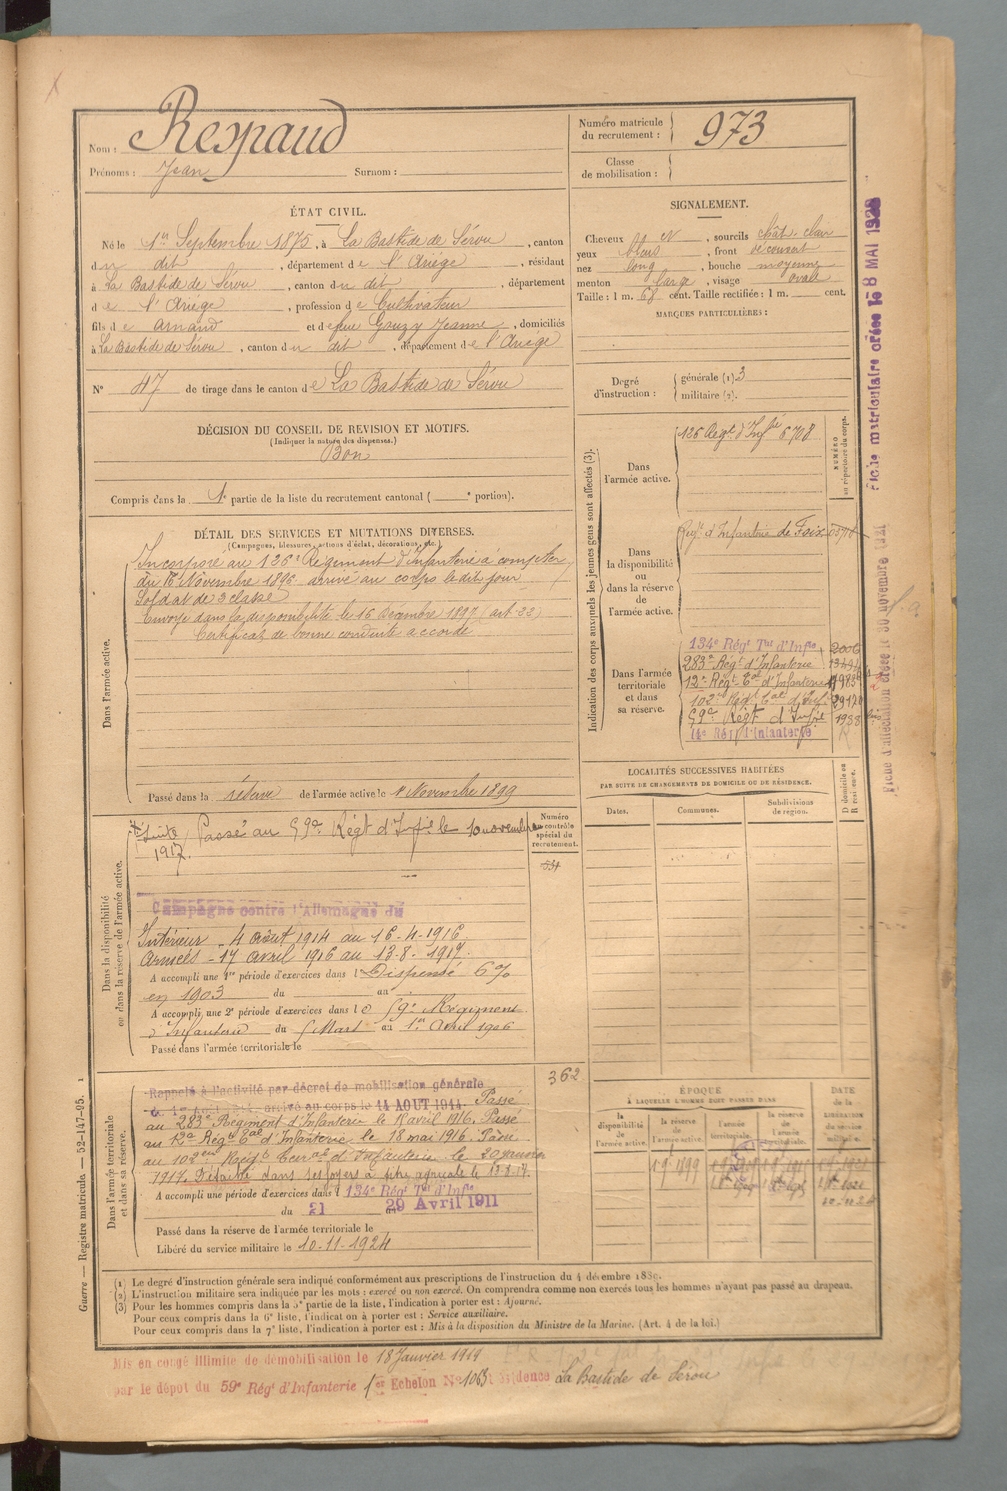 Nom : Respaud
Prénoms : Jean Surnom :
Numéro matricule du recrutement : 973
Classe de mobilisation :
ÉTAT CIVIL.
Né le 1er Septembre 1875, à La Bastide de Sérou, canton
du dit, département de l'Ariège, résidant
à La Bastide de Sérou, canton du dit, département
de l'Ariège, profession de Cultivateur
fils de Arnaud et de feue Gouzy Jeanne, domiciliés
à La Bastide de Sérou, canton du dit, département de l'Ariège
N° 47 de tirage dans le canton de La Bastide de Sérou
SIGNALEMENT.
Cheveux , sourcils chât. clair
yeux bleus, front découvert
nez long, bouche moyenne
menton large, visage ovale
Taille : 1 m. 68 cent. Taille rectifiée : 1 m. cent.
MARQUES PARTICULIÈRES :
Degré d'instruction : générale (1) 3
militaire (2).
DÉCISION DU CONSEIL DE REVISION ET MOTIFS.
(Indiquer la nature des dispenses.)
Bon
Compris dans la 1e partie de la liste du recrutement cantonal ( e portion).
DÉTAIL DES SERVICES ET MUTATIONS DIVERSES.
(Campagnes, blessures, actions d'éclat, décorations, etc.)
Dans l'armée active.
Incorporé au 126e Régiment d'Infanterie à compter
du Novembre 1896 arrivé au corps le dit jour
Soldat de 2e classe
Envoyé dans la disponibilité le 16 Décembre 1897 (art. 22)
Certificat de bonne conduite accordé
Passé dans la réserve de l'armée active le 1 Novembre 1899
Indication des corps auxquels les jeunes gens sont affectés (3).
NUMÉRO au répertoire du corps.
Dans l'armée active.
126 Régt d'Infie 6708
Dans la disponibilité ou dans la réserve de l'armée active.
Régt d'Infanterie de Foix
Dans l'armée territoriale et dans sa réserve.
134e Régt Tal d'Infie
283e Régt d'Infanterie
12e Régt Tal d'Infanterie
102e Régt Tal d'Infie
59e Régt d'Infie 1938
14e Régt d'Infanterie
LOCALITÉS SUCCESSIVES HABITÉES
PAR SUITE DE CHANGEMENTS DE DOMICILE OU DE RÉSIDENCE.
Dates. Communes. Subdivisions de région. D domicile ou R résidence.
Dans la disponibilité ou dans la réserve de l'armée active.
Numéro au contrôle spécial du recrutement.
Suite Passé au 59e Régt d'Infie le 10 novembre
1917.
Campagne contre l'Allemagne du
Intérieur - 4 août 1914 au 16-4-1916
Armées - 17 avril 1916 au 13-8-1917.
A accompli une 1re période d'exercices dans l Dispensé 6%
en 1903 du au
A accompli une 2e période d'exercices dans le 59e Régiment
d'Infanterie du 5 Mars au 1er Avril 1906
Passé dans l'armée territoriale le
Dans l'armée territoriale et dans sa réserve.
362
Rappelé à l'activité par décret de mobilisation générale
du 1er Août 1914, arrivé au corps le 14 AOUT 1914. Passé
au 283e Régiment d'Infanterie le avril 1916. Passé
au 12e Régt Tal d'Infanterie le 18 mai 1916. Passé
au 102e Régt d'Infanterie le 20
1917. Détaché dans ses foyers à titre agricole le 13.8.17.
A accompli une période d'exercices dans l 134e Régt Tal d'Infie
du 21 au 29 Avril 1911
Passé dans la réserve de l'armée territoriale le
Libéré du service militaire le 10-11-1924
ÉPOQUE
À LAQUELLE L'HOMME DOIT PASSER DANS
la disponibilité de l'armée active. la réserve de l'armée active. l'armée territoriale. la réserve de l'armée territoriale.
DATE de la LIBÉRATION du service militaire.
(1) Le degré d'instruction générale sera indiqué conformément aux prescriptions de l'instruction du 4 décembre 1889.
(2) L'instruction militaire sera indiquée par les mots : exercé ou non exercé. On comprendra comme non exercés tous les hommes n'ayant pas passé au drapeau.
(3) Pour les hommes compris dans la 5e partie de la liste, l'indication à porter est : Ajourné.
Pour ceux compris dans la 6e liste, l'indication à porter est : Service auxiliaire.
Pour ceux compris dans la 7e liste, l'indication à porter est : Mis à la disposition du Ministre de la Marine. (Art. 4 de la loi.)
Mis en congé illimité de démobilisation le 18 Janvier 1919
par le dépôt du 59e Régt d'Infanterie 1er Echelon N° 1063 Résidence La Bastide de Sérou
Guerre — Registre matricule. — 52-147-95.
Fiche matriculaire créée le 8 MAI 1928
Fiche d'affectation créée le 30 novembre 1921